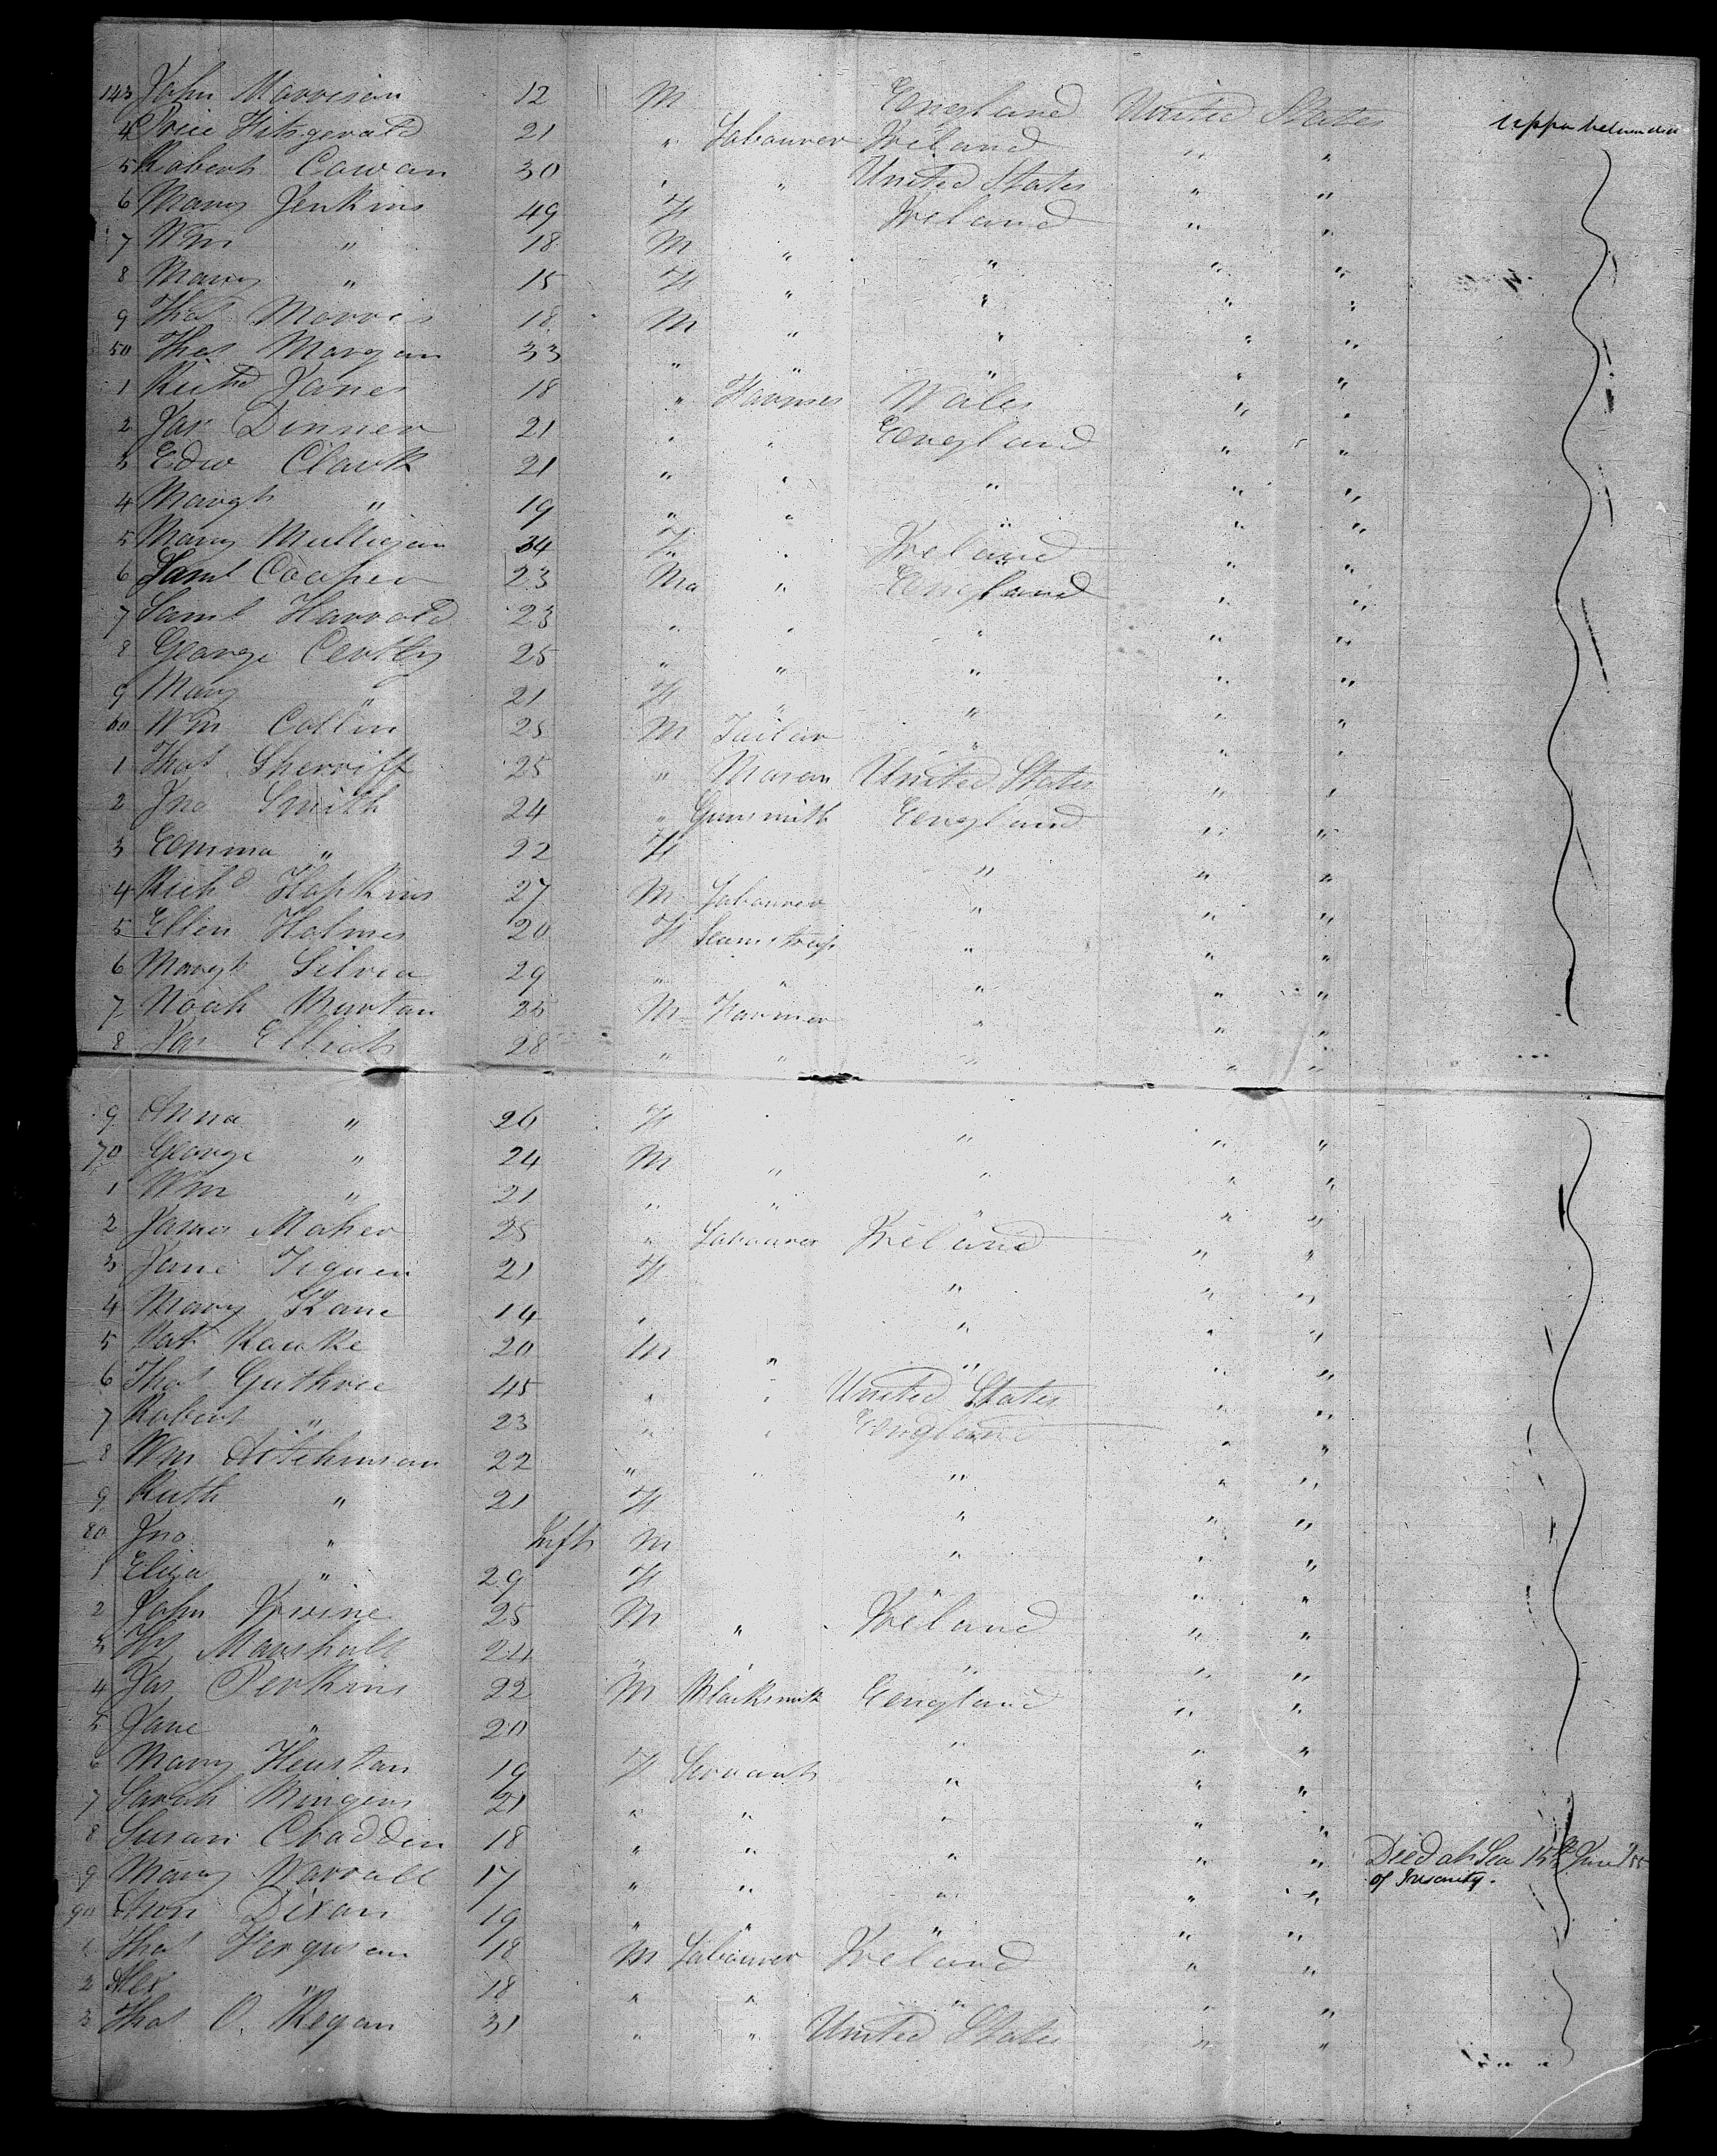 143 John Morrison 12 M England United States upper between decks
4 Price Fitzgerald 21 " Labourer Ireland " "
5 Robert Cowan 30 " " United States " "
6 Mary Jenkins 49 F Ireland " "
7 Wm " 18 M " " " "
8 Mary " 15 F " " " "
9 Thos Morris 18 M " " " "
50 Thos Morgan 33 " " " " "
1 Richd Jones 18 " Farmer Wales " "
2 Jas Dinner 21 " " England " "
3 Edw Clark 21 " " " " "
4 Margt " 19 " " " " "
5 Mary Mulligan 34 F " Ireland " "
6 Saml Cooper 23 Ma " England " "
7 Saml Harrold 23 " " " " "
8 George 25 " " " " "
9 Mary " 21 F " " " "
60 Wm Collin 25 M Tailor " " "
1 Thos Sherriff 25 " Mason United States " "
2 Jno Smith 24 " Gunsmith England " "
3 Emma " 22 F " " "
4 Richd Hopkins 27 M Labourer " " "
5 Ellen Holmes 20 F Seamstress " " "
6 Margt Silvia 29 " " " " "
7 Noah Burton 25 M Farmer " " "
8 Jas Elliott 28 " " " " "
9 Anna " 26 F " " "
70 George " 24 M " " " "
1 Wm " 21 " " " " "
2 James Maher 25 " Labourer Ireland " "
3 Jane 21 F " " "
4 Mary Kane 14 " " " "
5 Pat Rourke 20 M " " " "
6 Thos Guthrie 45 " " United States " "
7 Robert " 23 " " England " "
8 Wm Hotchinson 22 " " " " "
9 Ruth " 21 F " " "
80 Jno " Inft M " " "
1 Eliza " 29 F " " "
2 John Irvine 25 M " Ireland " "
3 Hy Marshall 24 " " " " "
4 Jas Perkins 22 M Blacksmith England " "
5 Jane " 20 " " "
6 Mary Heustan 19 F Servant " " "
7 Sarah 21 " " " " "
8 Susan 18 " " " " " Died at Sea 15th June 55
9 Mary Worrall 17 " " " " " of Insanity.
90 Ann Dixon 19 " " " " "
1 Thos Ferguson 18 M Labourer Ireland " "
2 Alex " 18 " " " " "
3 Thos O. Regan 31 " " United States " "